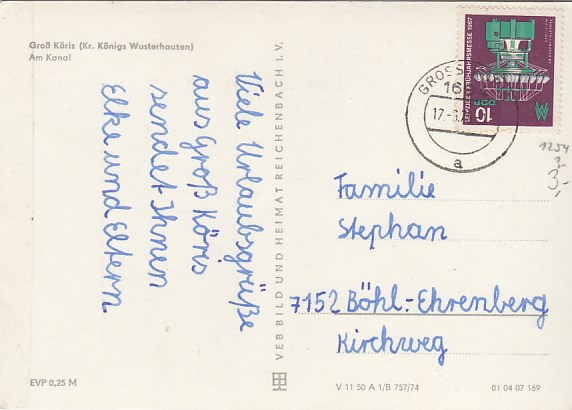 Groß Köris (Kr. Königs Wusterhausen)
Am Kanal
Viele Urlaubsgrüße
aus Groß Köris
sendet Ihnen
Elke und Eltern
VEB BILD UND HEIMAT REICHENBACH I. V.
LEIPZIGER FRÜHJAHRSMESSE 1967
DDR
10
GROSS
16
17.-
a
1254
3,-
Familie
Stephan
7152 Böhl.-Ehrenberg
Kirchweg
EVP 0,25 M
V 11 50 A 1/B 757/74
01 04 07 169